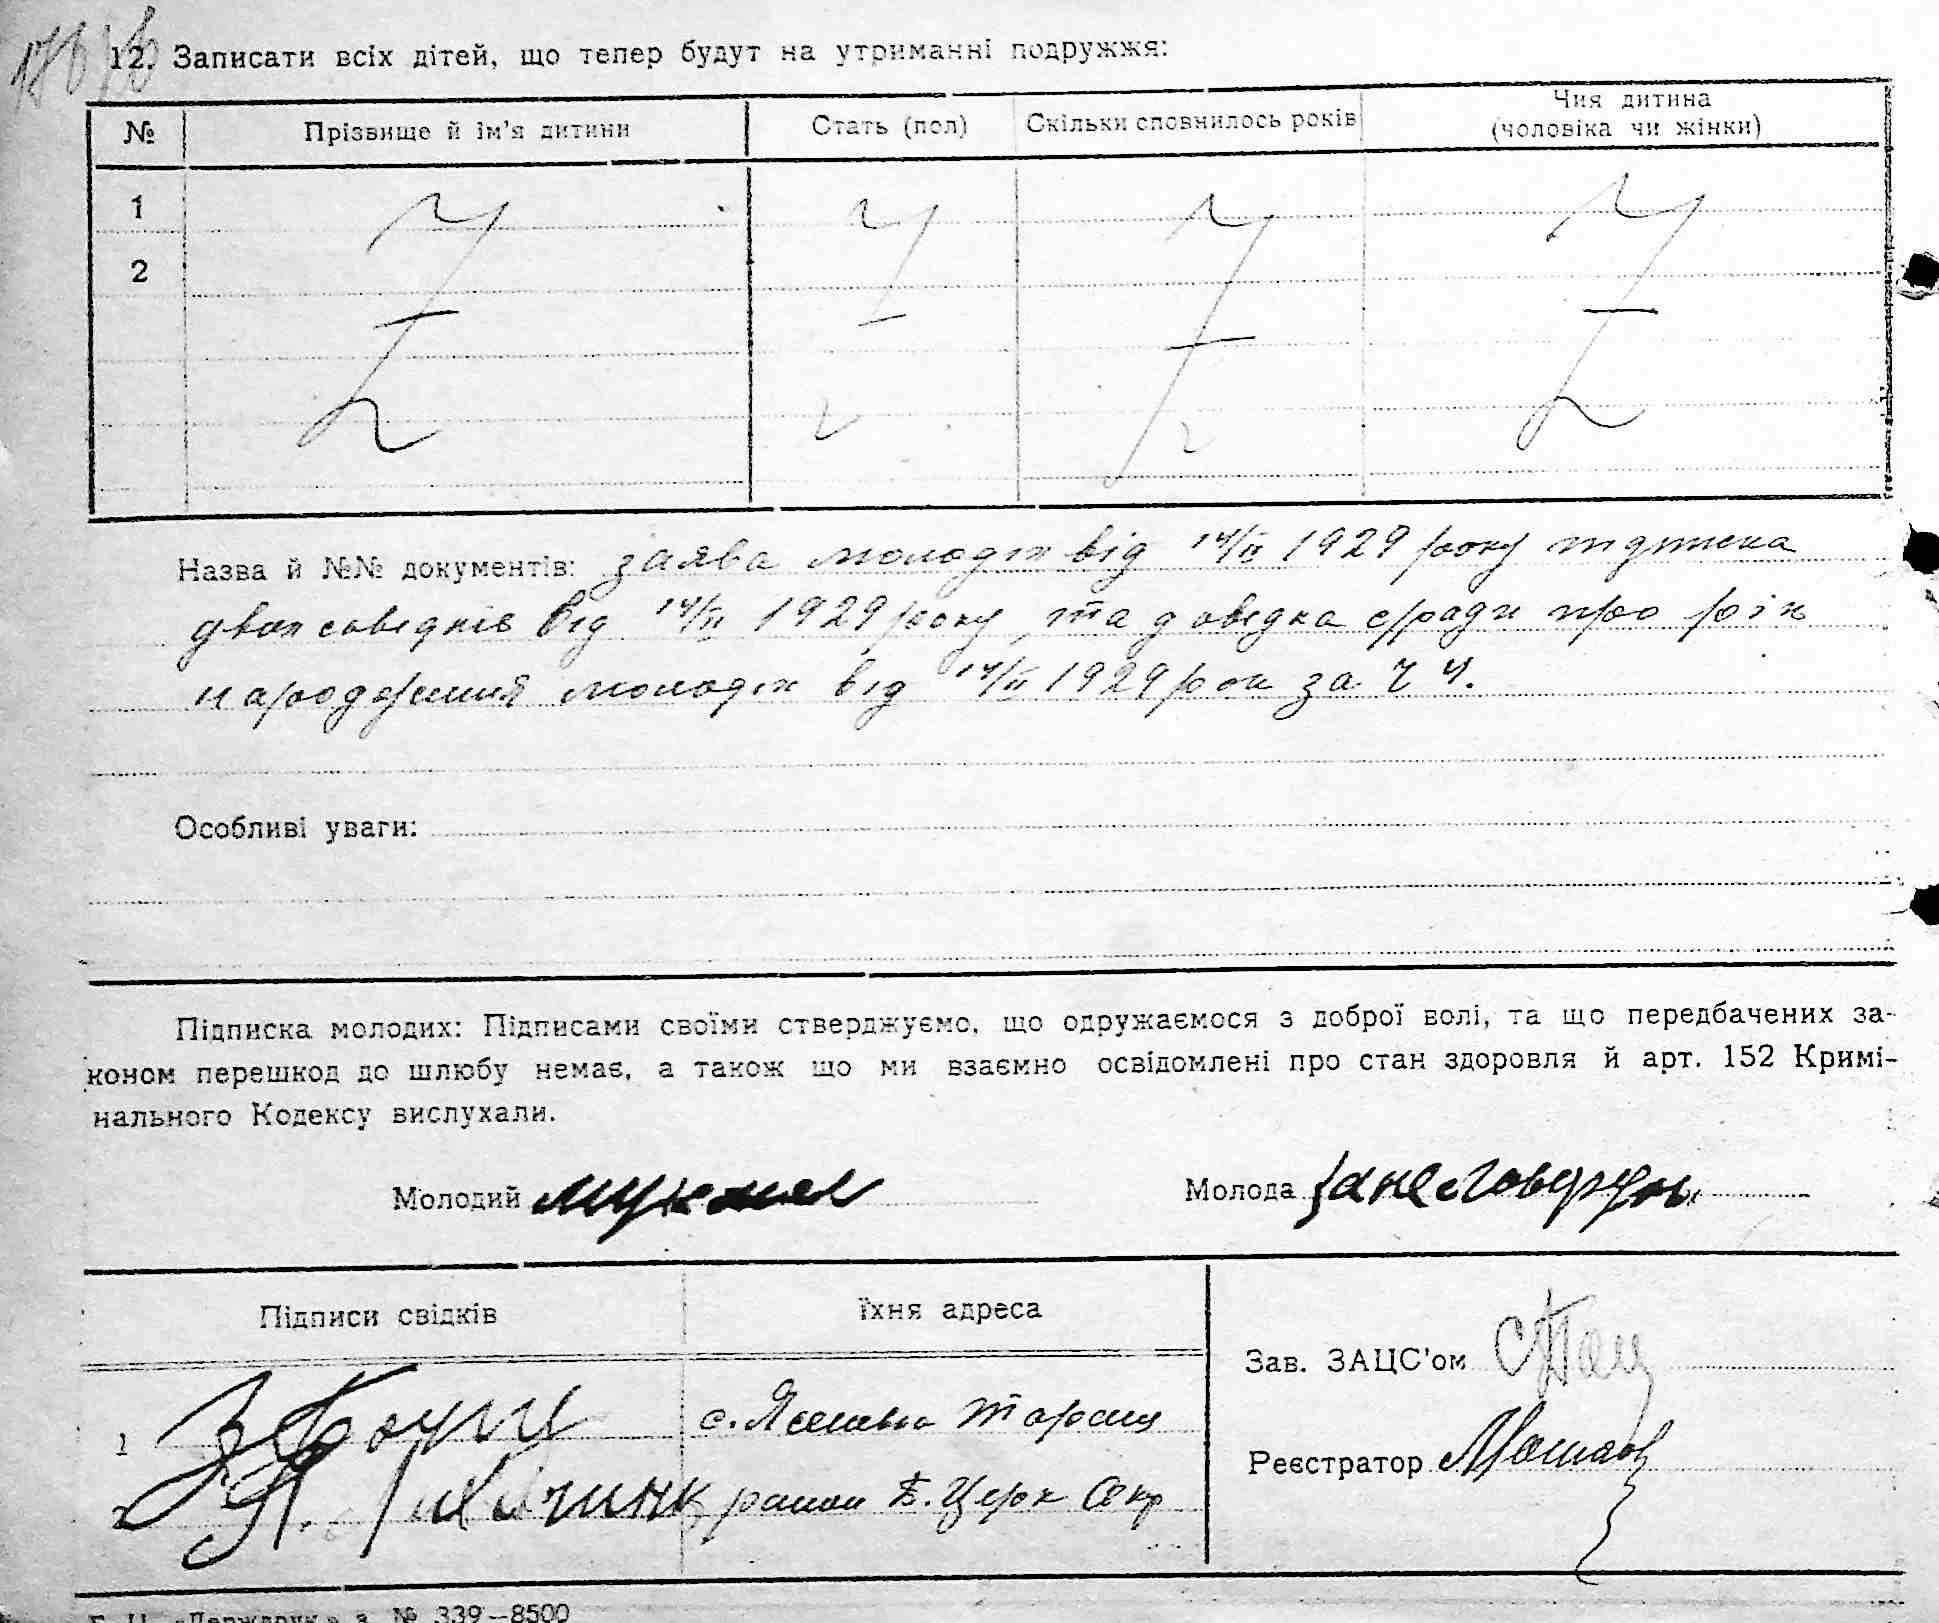 12. Записати всіх дітей, що тепер будут на утриманні подружжя:
№ Прізвище й ім'я дитини Стать (пол) Скільки сповнилось років Чия дитина
(чоловіка чи жінки)
1
2
Назва й №№ документів: заява молодих від 14/II 1929 року підписка
двох свідків від 14/II 1929 року, та довідка с/ради про рік
народження молодих від 14/II 1929 рок за ч 4.
Особливі уваги:
Підписка молодих: Підписами своїми стверджуємо, що одружаємося з доброї волі, та що передбачених за-
коном перешкод до шлюбу немає, а також що ми взаємно освідомлені про стан здоровля й арт. 152 Кримі-
нального Кодексу вислухали.
Молодий Молода
Підписи свідків Їхня адреса
Зав. ЗАЦС'ом
1 с.
Реєстратор
2 район Б. Церк Окр
№ 339—8500